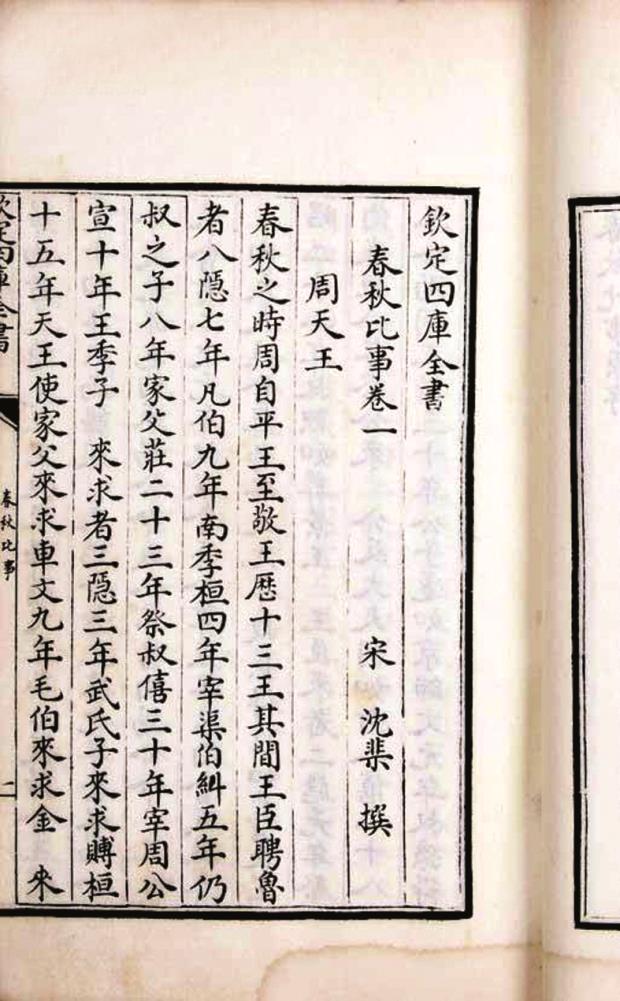 欽定四庫全書
春秋比事卷一 宋 沈棐 撰
周天王
春秋之時周自平王至敬王歷十三王其間王臣聘魯
者八隱七年凡伯九年南季桓四年宰渠伯糾五年仍
叔之子八年家父莊二十三年祭叔僖三十年宰周公
宣十年王季子 來求者三隱三年武氏子來求賻桓
十五年天王使家父來求車文九年毛伯來求金 來
欽定四庫全書
春秋比事